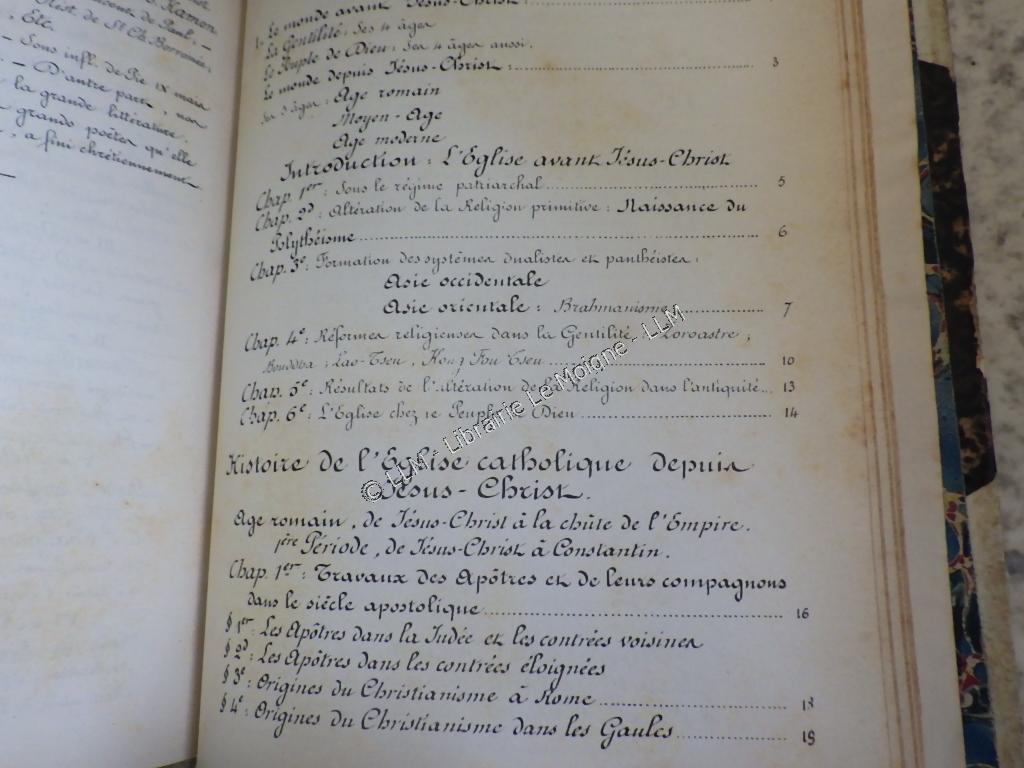 Kamon
Vincents de Paul, –
Hist. de St Ch. Borromée,
Etc.
– Sous infl. de Pie IX mais
– D'autre part, non
la grande littérature.
grands poètes qu'elle
, a fini chrétiennement
1. Le monde avant Jésus-Christ :
La Gentilité : Ses 4 âges
Le Peuple de Dieu : Ses 4 âges aussi.
Le monde depuis Jésus-Christ : 3
Ses 3 âges : Age romain
Moyen-Age
Age moderne
Introduction : L'Eglise avant Jésus-Christ
Chap. 1er : Sous le régime patriarchal 5
Chap. 2d : Altération de la Religion primitive : Naissance du
Polythéisme 6
Chap. 3e : Formation des systèmes dualistes et panthéistes :
Asie occidentale
Asie orientale : Brahmanisme 7
Chap. 4e : Réformes religieuses dans la Gentilité : Zoroastre ;
Bouddha ; Lao-Tseu ; Kong Fou Tseu 10
Chap. 5e : Résultats de l'altération de la Religion dans l'antiquité 13
Chap. 6e : L'Eglise chez le Peuple de Dieu 14
Histoire de l'Eglise catholique depuis
Jésus-Christ.
Age romain, de Jésus-Christ à la chûte de l'Empire.
1ère Période, de Jésus-Christ à Constantin.
Chap. 1er : Travaux des Apôtres et de leurs compagnons
dans le siècle apostolique 16
§ 1er : Les Apôtres dans la Judée et les contrées voisines
§ 2d : Les Apôtres dans les contrées éloignées
§ 3e : Origines du Christianisme à Rome 18
§ 4e : Origines du Christianisme dans les Gaules 19
© LLM - Librairie Le Moigne - LLM